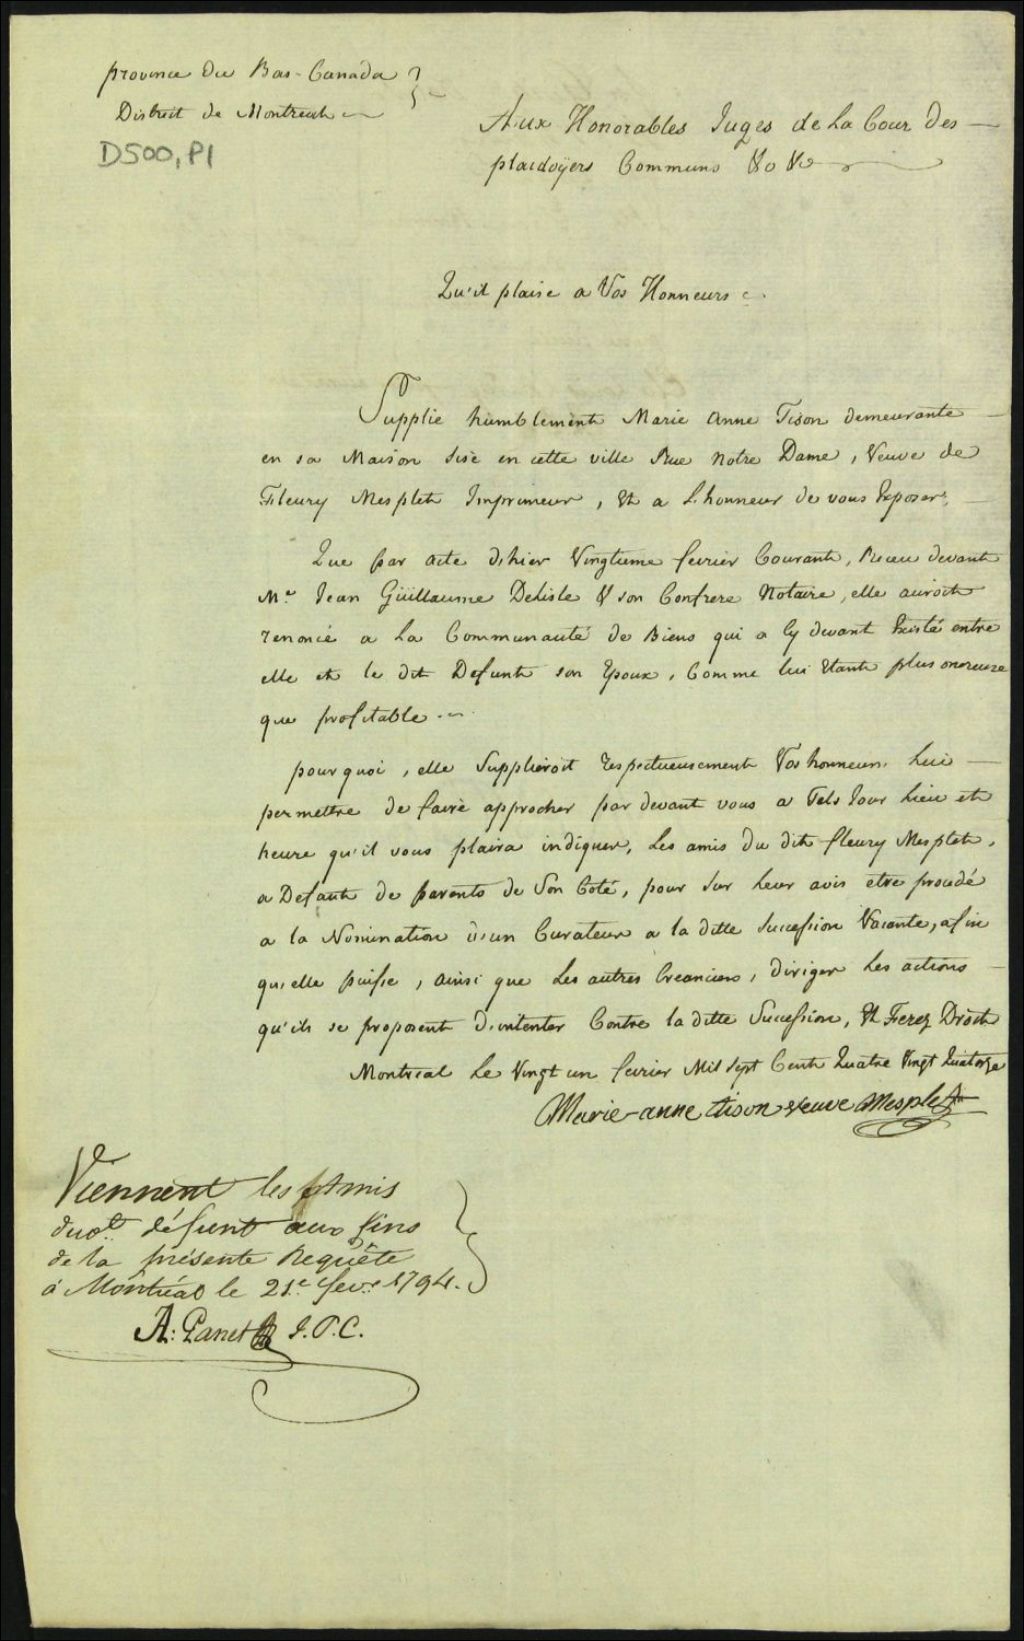 province du Bas-Canada
District de Montreal
D500,P1
Aux Honorables Juges de La Cour Des
plaidoÿers Communs &c &c
Qu'il plaise a Vos Honneurs
Supplie humblement Marie Anne Tison demeurante
en sa Maison Sise en cette ville Rue Notre Dame, Veuve de
Fleury Mesplet Imprimeur, Et a L'honneur de vous Exposer,
Que par acte d'hier Vingtieme fevrier Courant, Recu devant
Me Jean Güillaume Delisle & son Confrere Notaire, elle auroit
renoncé a La Communauté de Biens qui a Cy devant Existé entre
elle et le dit Defunt son Epoux, Comme lui Etant plus onereuse
que profitable
pourquoi, elle Supplieroit respectueusement Vos honneurs Lui
permettre de faire approcher par devant vous a Tels Jour Lieu et
heure qu'il vous plaira indiquer, Les amis du dit fleury Mesplet,
a Defaut de parents de Son Coté, pour Sur Leur avis etre procedé
a la Nomination d'un Curateur a la ditte Succession Vacante, afin
qu'elle puisse, ainsi que Les autres Creanciers, diriger Les actions
qu'ils se proposent D'intenter Contre la ditte Succession, Et Ferez Droit
Montreal Le Vingt un fevrier Mil Sept Cent Quatre Vingt Quatorze
Marie-anne tison veuve Mesplet
Viennent les Amis
dud.t défunt aux fins
de la présente Requête
à Montréal le 21.e fevr. 1794.
A: Panet J.P.C.